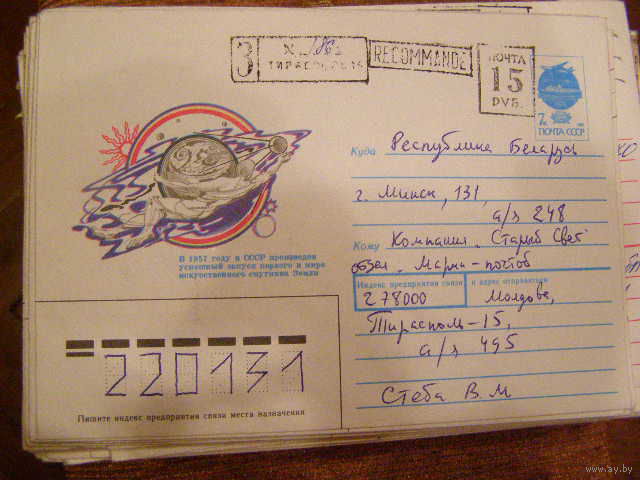 З
№ 186
ТИРАСПОЛЬ 15
RECOMMANDÉ
ПОЧТА
15
РУБ.
7к
ПОЧТА СССР
В 1957 году в СССР произведен
успешный запуск первого в мире
искусственного спутника Земли
Куда Республика Беларусь
г. Минск, 131,
а/я 248
Кому Компания "Старый Свет"
Марки-почтой
Индекс предприятия связи и адрес отправителя
278000 Молдова,
Тирасполь-15,
а/я 495
Стеба В.М
220131
Пишите индекс предприятия связи места назначения
www.ay.by